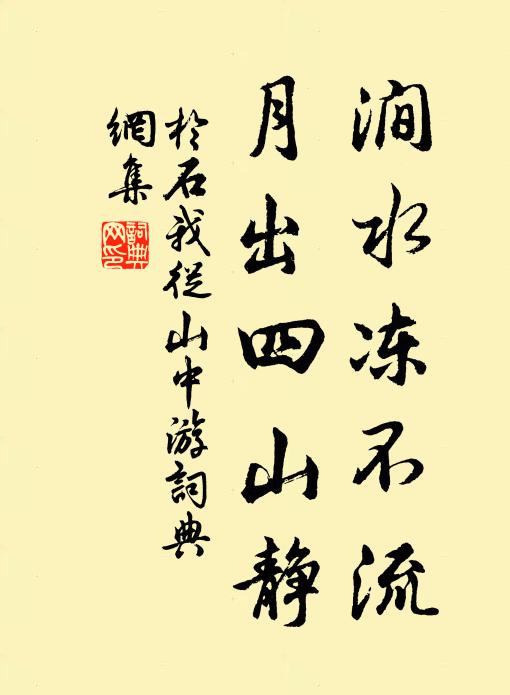 涧水冻不流
月出四山静
於石我從山中游詞典
網集
詞典
网印